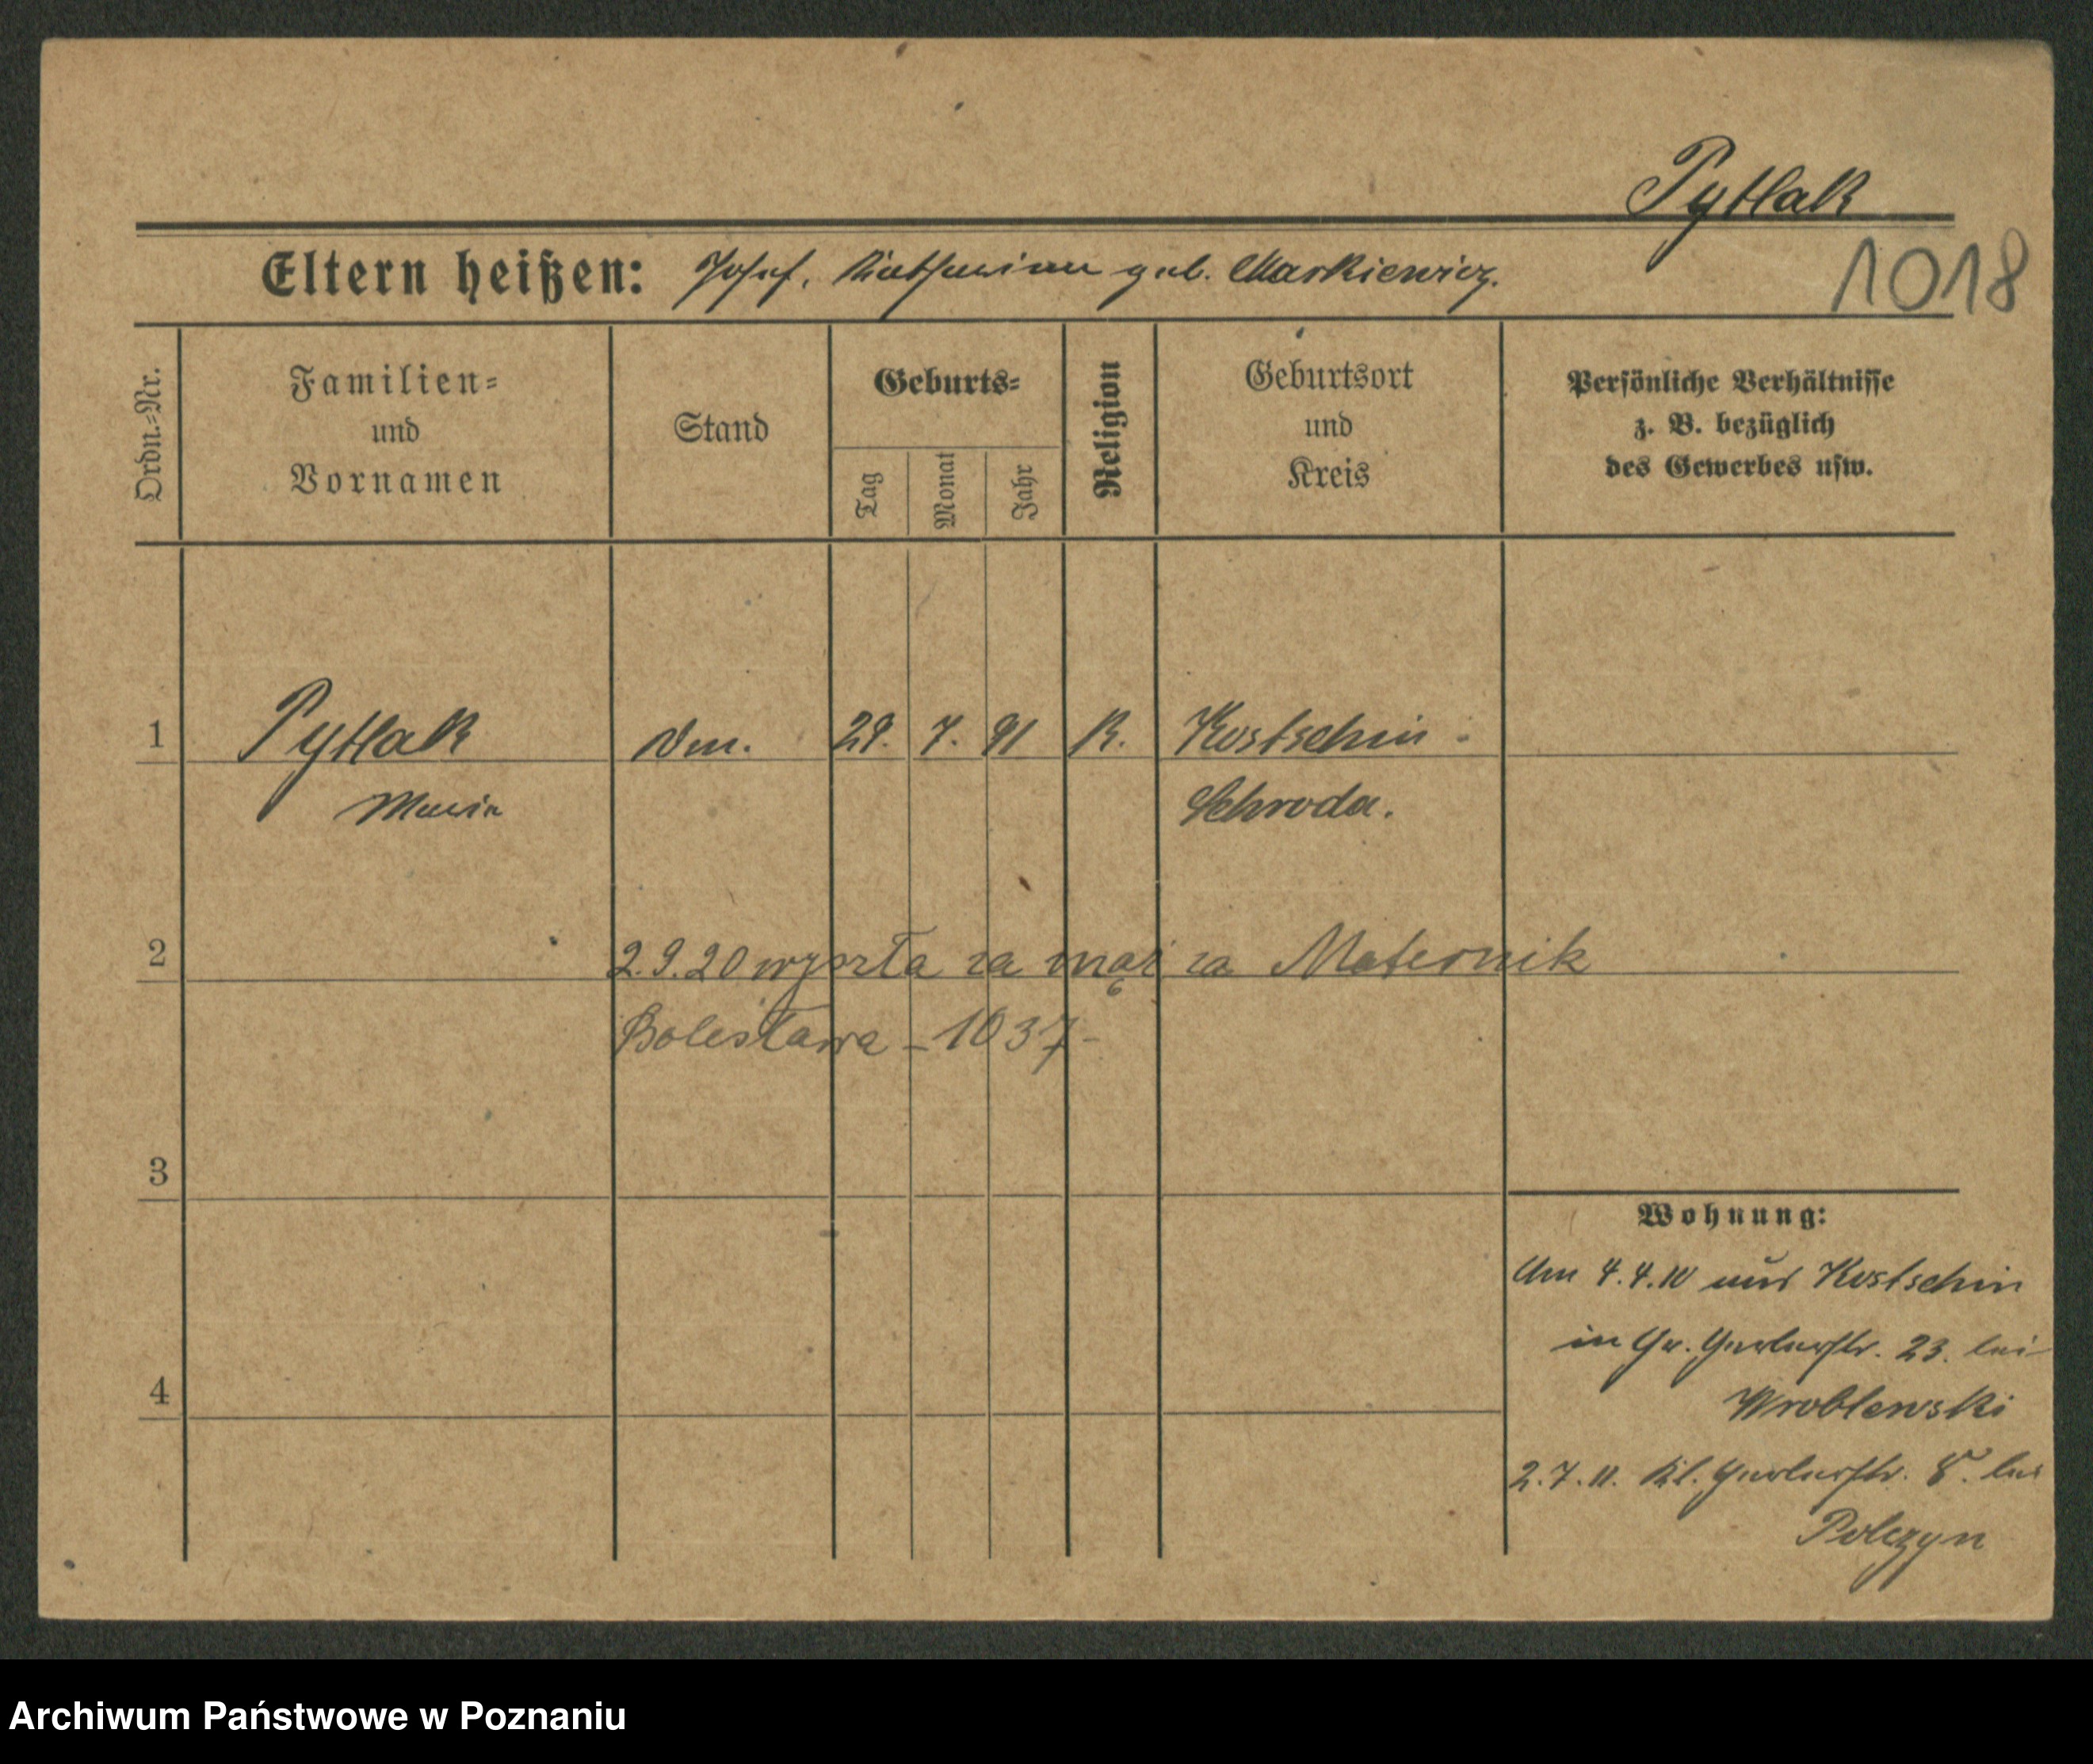 Pytlak
1018
Eltern heißen: Josef, Katharina geb. Markiewicz.
Ordn.=Nr.
Familien=
und
Vornamen
Stand
Geburts=
Tag
Monat
Jahr
Religion
Geburtsort
und
Kreis
Persönliche Verhältnisse
z. B. bezüglich
des Gewerbes usw.
1 Pytlak 29. 7. 91 K. Kostschin -
Maria Schroda.
2 2.9.20 wyszła za mąż za Maternik
Bolesława - 1037 -
3
Wohnung:
Am 4.4.10 aus Kostschin
in Gr. Gerberstr. 23. bei
4
Wroblewski
2.7.11. Kl. Gerberstr. 8. bei
Polczyn
Archiwum Państwowe w Poznaniu